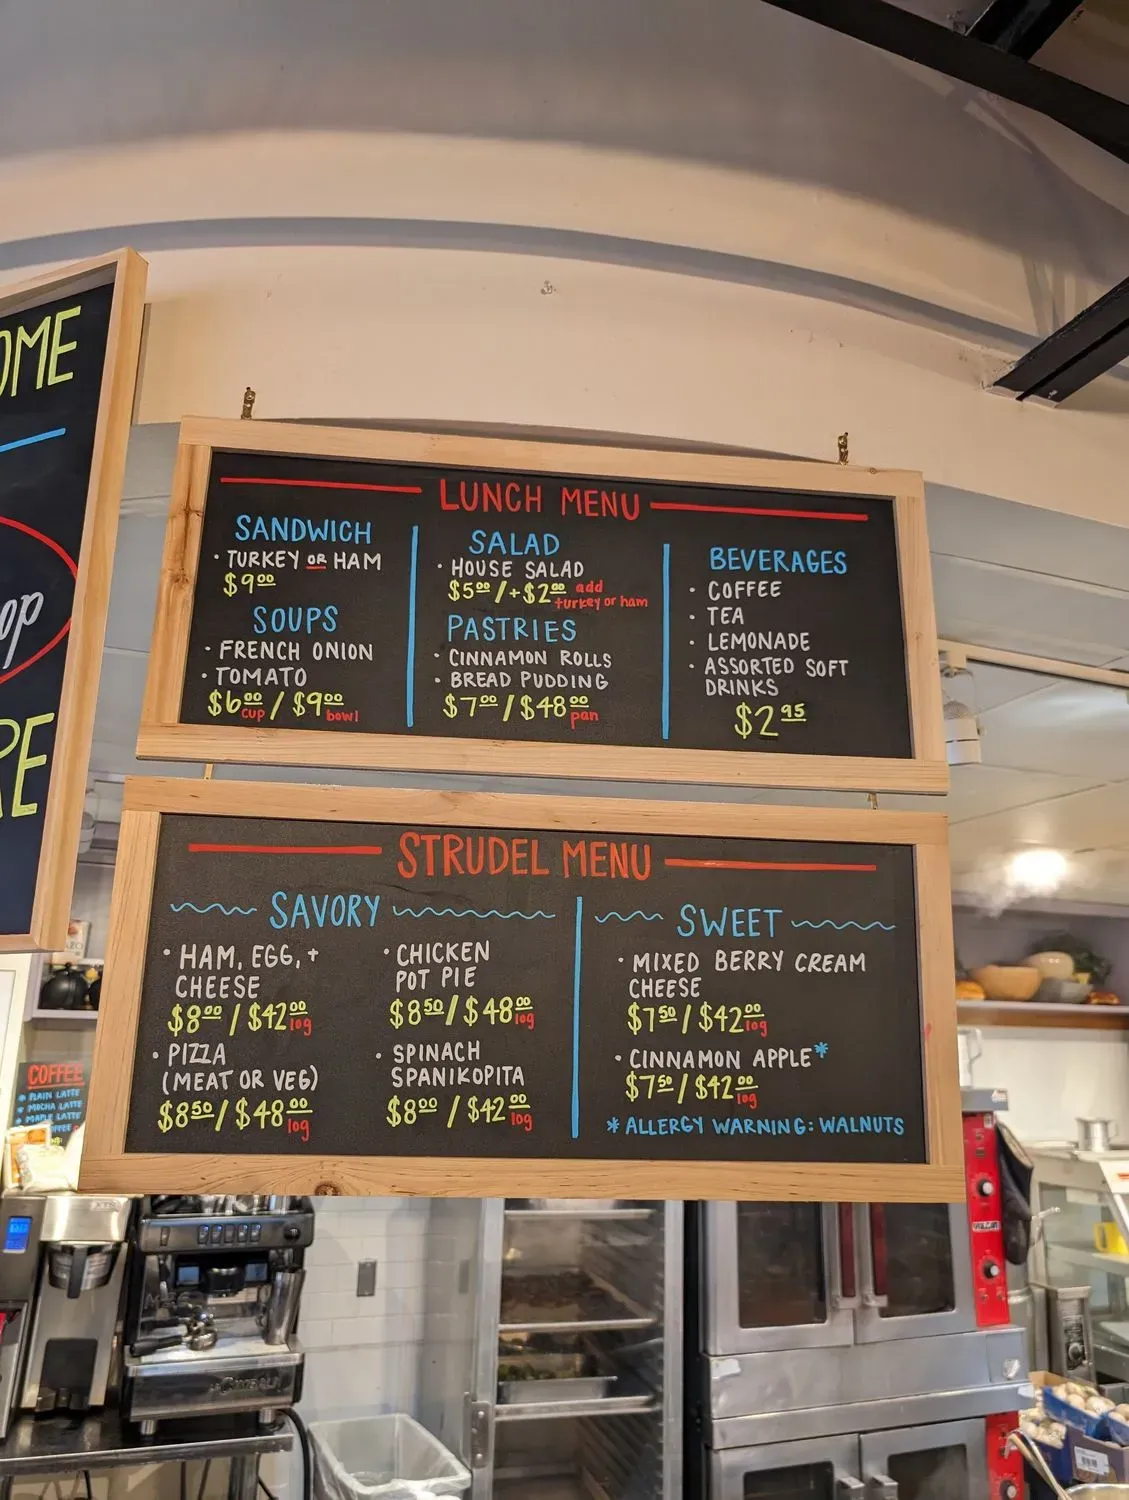 OME
op
RE
LUNCH MENU
SANDWICH
• TURKEY OR HAM
$9.00
SOUPS
• FRENCH ONION
• TOMATO
$6.00 cup / $9.00 bowl
SALAD
• HOUSE SALAD
$5.00 / +$2.00 add turkey or ham
PASTRIES
• CINNAMON ROLLS
• BREAD PUDDING
$7.00 / $48.00 pan
BEVERAGES
• COFFEE
• TEA
• LEMONADE
• ASSORTED SOFT
DRINKS
$2.95
STRUDEL MENU
SAVORY
• HAM, EGG, +
CHEESE
$8.00 / $42.00 log
• PIZZA
(MEAT OR VEG)
$8.50 / $48.00 log
• CHICKEN
POT PIE
$8.50 / $48.00 log
• SPINACH
SPANIKOPITA
$8.00 / $42.00 log
SWEET
• MIXED BERRY CREAM
CHEESE
$7.50 / $42.00 log
• CINNAMON APPLE*
$7.50 / $42.00 log
* ALLERGY WARNING: WALNUTS
COFFEE
PLAIN LATTE
MOCHA LATTE
MAPLE LATTE
VULCAN